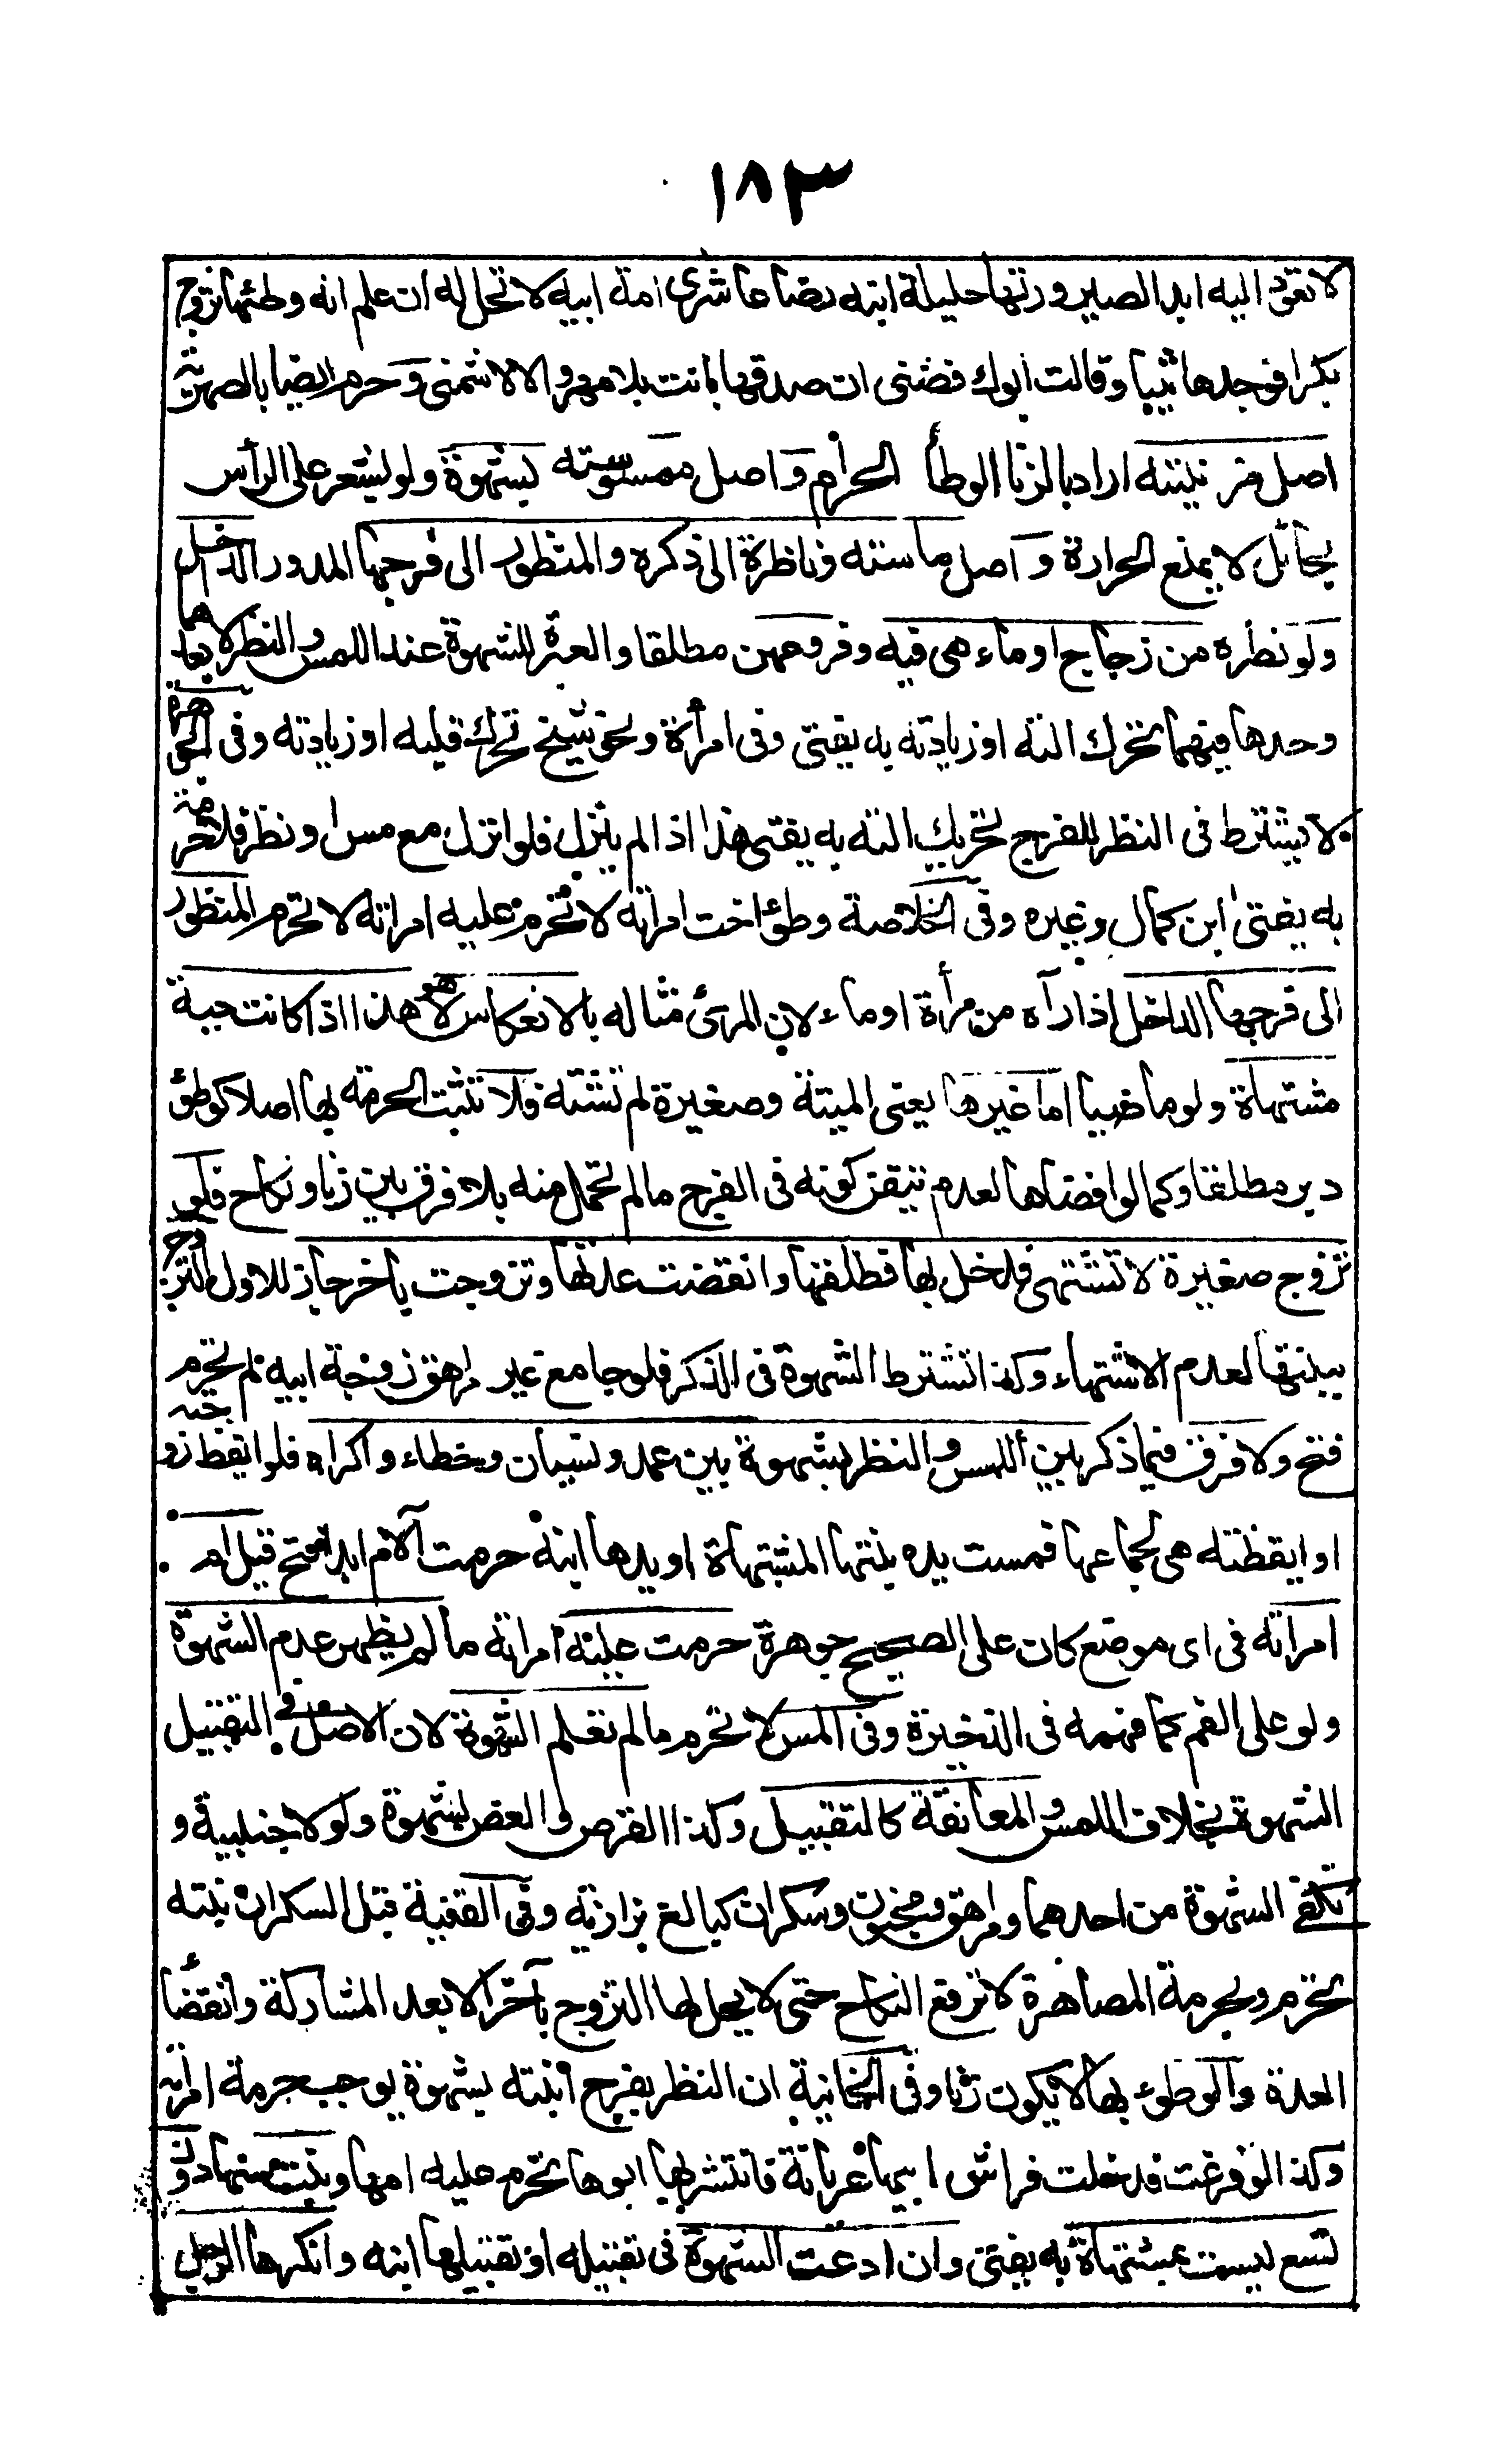 ١٨٣
لا تعود اليه ابدا لصيرورتها حليلة ابنه رضاعا شرى امة ابيه لا تحل له ان علم انه وطئها تزوج
بكرا فوجدها ثيبا وقالت ابوك فضنى ان صدقها بانت بلا مهر والا لا شمنى وحرم ايضا بالصهرية
اصل مزنيته اراد بالزنا الوطأ الحرام واصل ممسوسته بشهوة ولو لشعر على الرأس
بحائل لا يمنع الحرارة و اصل ماسته وناظرة الى ذكره والمنظور الى فرجها المدور الداخل
ولو نظره من زجاج او ماء هى فيه وفروعهن مطلقا والعبرة للشهوة عند اللمس والنظر لا بعدهما
وحدها فيهما تحرك الته او زيادته به يفتى وفى امرأة ونحو شيخ تحرك قلبه او زيادته وفى الجوهرة
لا يشترط فى النظر للفرج تحريك الته به يفتى هذا اذا لم ينزل فلو انزل مع مس او نظر فلا حرمة
به يفتى ابن كمال وغيره وفى الخلاصة وطئ اخت امرأته لا تحرم عليه امراته لا تحرم المنظور
الى فرجها الداخل اذا رآه من مرأة او ماء لان المرئ مثاله بالانعكاس لا هو هذا اذا كانت حية
مشتهاة ولو ماضيا اما غيرها يعنى الميتة وصغيرة لم تشته فلا تثبت الحرمة بها اصلا كوطئ
دبر مطلقا وكما لو افضاها لعدم تيقن كونه فى الفرج مالم تحمل منه بلا فرق بين زنا ونكاح فلو
تزوج صغيرة لا تشتهى فدخل بها فطلقها وانقضت عدتها وتزوجت باخر جاز للاول التزوج
ببنتها لعدم الاشتهاء وكذا تشترط الشهوة فى الذكر فلو جامع غير مراهق زوجة ابيه لم تحرم
فتح ولا فرق فيما ذكر بين اللمس والنظر بشهوة بين عمد ونسيان وخطاء واكراه فلو ايقظ زوجته
او ايقظته هى لجماعها فمست يده بنتها المشتهاة او يدها ابنه حرمت الام ابدا فتح قبل ام
امراته فى اى موضع كان على الصحيح جوهرة حرمت عليه امراته ما لم يظهر عدم الشهوة
ولو على الفم كما فهمه فى الذخيرة وفى المس لا تحرم مالم تعلم الشهوة لان الاصل فى التقبيل
الشهوة بخلاف اللمس والمعانقة كالتقبيل وكذا القرص والعض بشهوة ولو لاجنبية و
تكفى الشهوة من احدهما ومراهق ومجنون وسكران كبالغ بزازية وفى القنية قبل السكران بنته
تحرم وبحرمة المصاهرة لا ترفع النكاح حتى لا يحل لها التزوج بآخر الا بعد المتاركة وانقضا
العدة والوطئ بها لا يكون زنا وفى الخانية ان النظر بفرج ابنته بشهوة يوجب حرمة امراته
وكذا لو فزعت فدخلت فراش ابيها عريانة فانتشر لها ابوها تحرم عليه امها وبنت سنها دون
تسع ليست بمشتهاة به يفتى وان ادعت الشهوة فى تقبيله او تقبيلها ابنه وانكرها الرجل